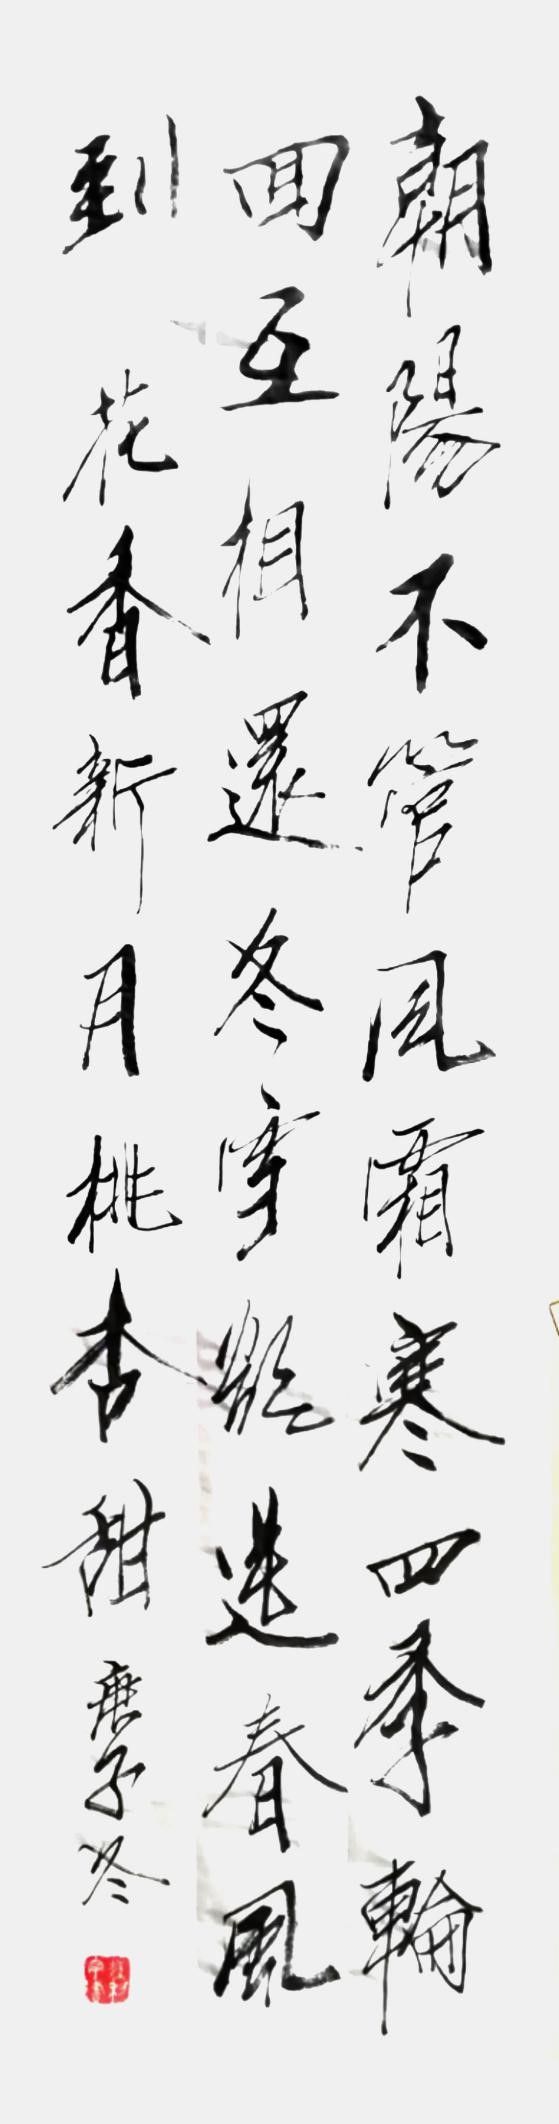 朝陽不管風霜寒四季輪
回互相還冬雪送春風
到花香新月桃杏甜
庚子冬